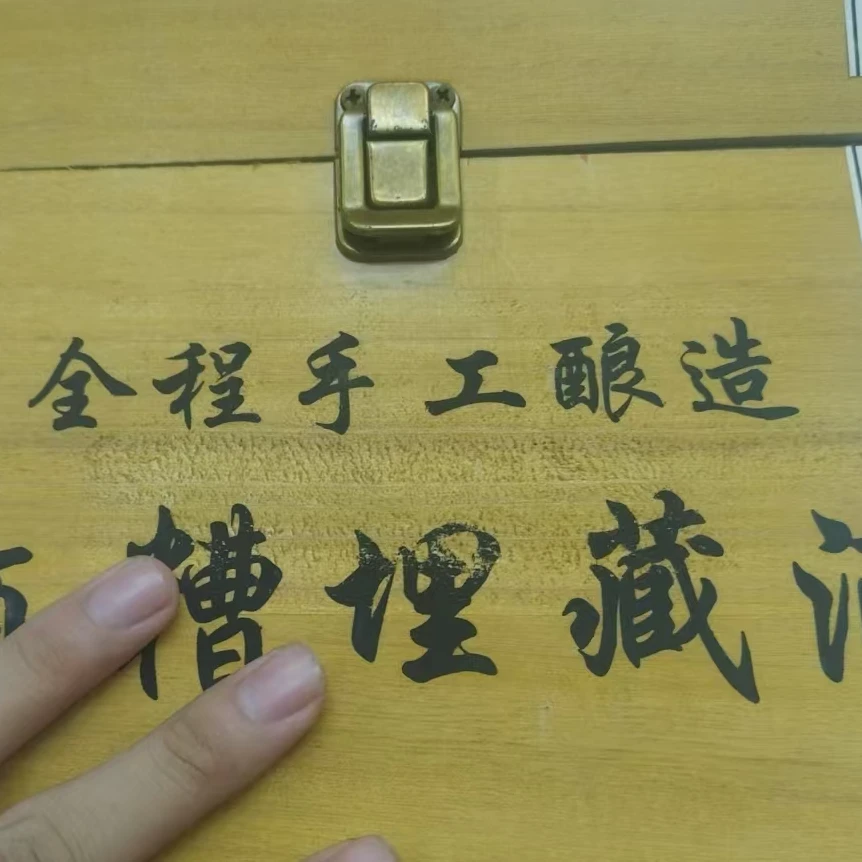 全程手工酿造
槽埋藏